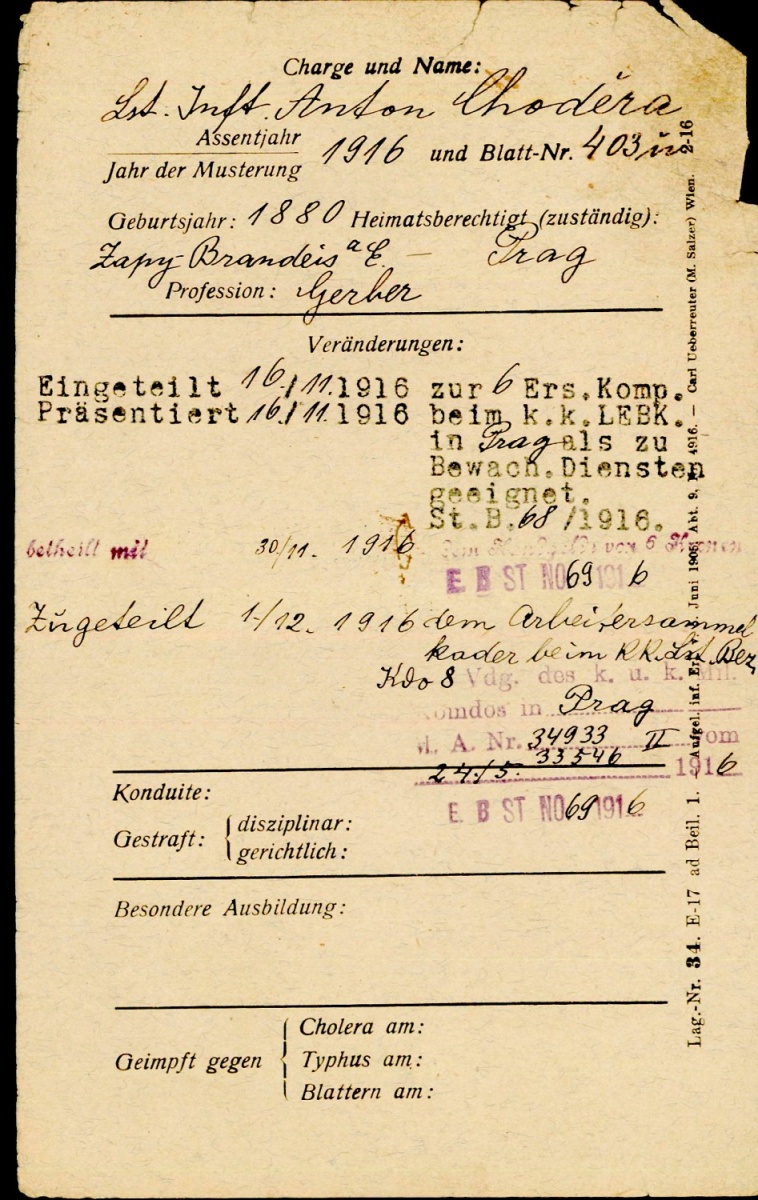 Charge und Name:
Lst. Inft. Anton Choděra
Assentjahr
Jahr der Musterung 1916 und Blatt-Nr. 403
Geburtsjahr: 1880 Heimatsberechtigt (zuständig):
Zapy- Brandeis a E. — Prag
Profession: Gerber
Veränderungen:
Eingeteilt 16./11.1916 zur 6 Ers.Komp.
Präsentiert 16./11.1916 beim k.k.LEBK.
in Prag als zu
Bewach.Diensten
geeignet.
St.B.68/1916.
betheilt mit 30/11. 1916 von 6 Kronen
E B ST NO 69 1916
Zugeteilt 1./12. 1916 dem Arbeitersammel
kader beim k.k. Lst. Bez.
Kdo 8 Vdg. des k. u. k. Mil.
Komdos in Prag
M. A. Nr. 34933 II vom
33546
24./5. 1916
E B ST NO 69 1916
Konduite:
Gestraft: disziplinar:
gerichtlich:
Besondere Ausbildung:
Geimpft gegen Cholera am:
Typhus am:
Blattern am:
Lag.-Nr. 34. E-17 ad Beil. 1. — Aufgel. inf. Erl. Juni 1906, Abt. 9, 4916. — Carl Ueberreuter (M. Salzer) Wien. 2-16